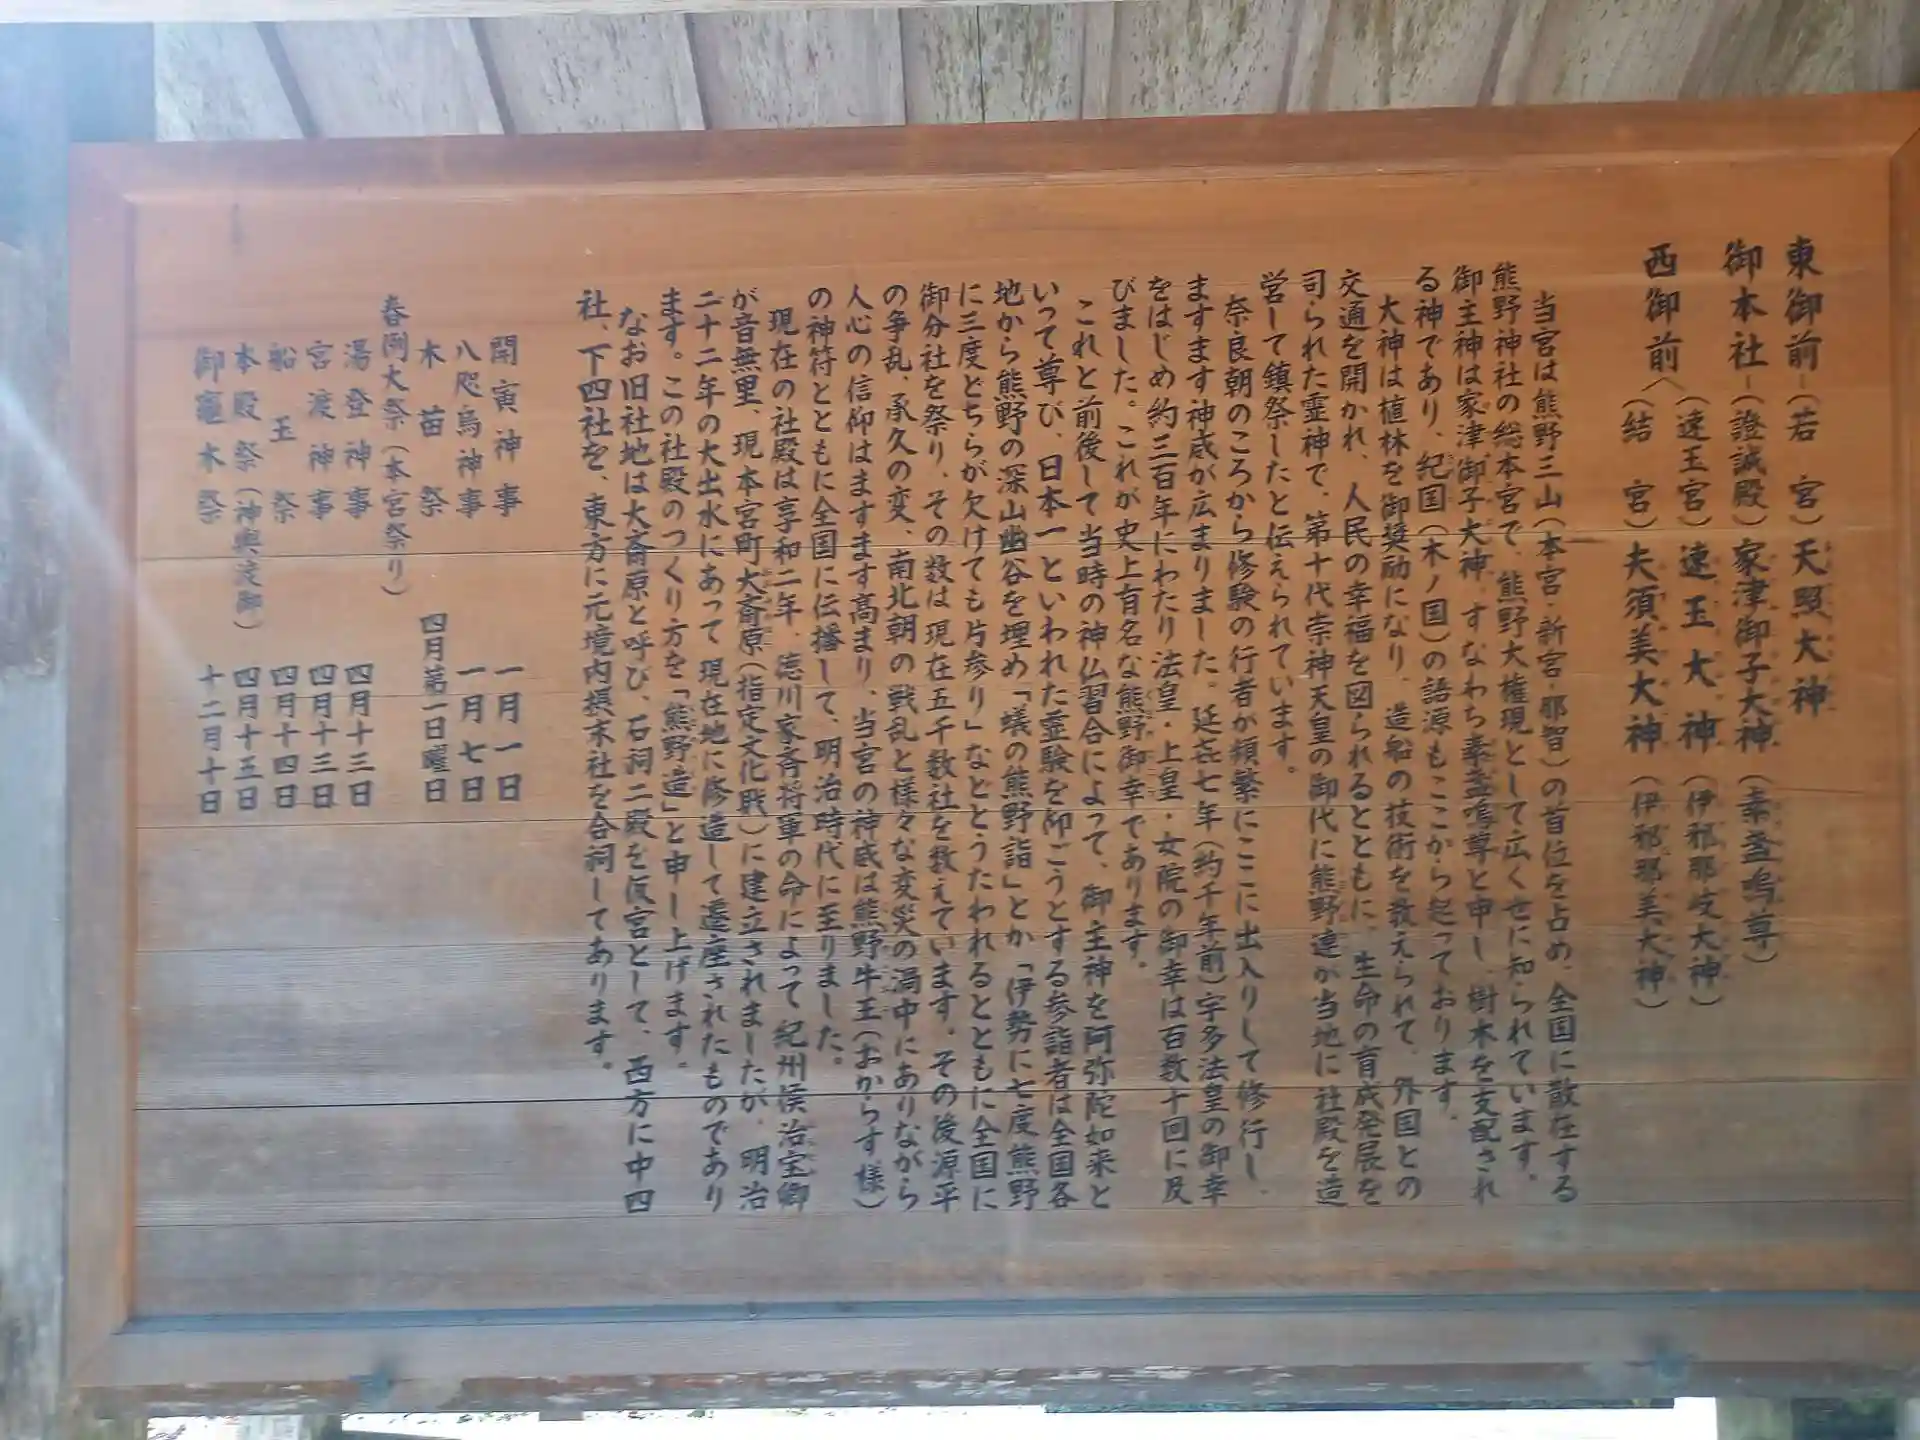 東御前―(若　宮)天照大神
御本社―(證誠殿)家津御子大神(素盞嗚尊)
西御前〈(速玉宮)速玉大神(伊邪那岐大神)
(結　宮)夫須美大神(伊邪那美大神)
当宮は熊野三山(本宮・新宮・那智)の首位を占め、全国に散在する
熊野神社の総本宮で、熊野大権現として広く世に知られています。
御主神は家津御子大神、すなわち素盞嗚尊と申し、樹木を支配され
る神であり、紀国(木ノ国)の語源もここから起っております。
大神は植林を御奨励になり、造船の技術を教えられて、外国との
交通を開かれ、人民の幸福を図られるとともに、生命の育成発展を
司られた霊神で、第十代崇神天皇の御代に熊野連が当地に社殿を造
営して鎮祭したと伝えられています。
奈良朝のころから修験の行者が頻繁にここに出入りして修行し、
ますます神威が広まりました。延喜七年(約千年前)宇多法皇の御幸
をはじめ約三百年にわたり法皇・上皇・女院の御幸は百数十回に及
びました。これが史上有名な熊野御幸であります。
これと前後して当時の神仏習合によって、御主神を阿弥陀如来と
いって尊び、日本一といわれた霊験を仰ごうとする参詣者は全国各
地から熊野の深山幽谷を埋め「蟻の熊野詣」とか「伊勢に七度熊野
に三度どちらが欠けても片参り」などとうたわれるとともに全国に
御分社を祭り、その数は現在五千数社を数えています。その後源平
の争乱、承久の変、南北朝の戦乱と様々な変災の渦中にありながら
人心の信仰はますます高まり、当宮の神威は熊野牛王(おからす様)
の神符とともに全国に伝播して、明治時代に至りました。
現在の社殿は享和二年、徳川家斉将軍の命によって紀州侯治宝卿
が音無里、現本宮町大斎原(指定文化財)に建立されましたが、明治
二十二年の大出水にあって現在地に修造して遷座されたものであり
ます。この社殿のつくり方を「熊野造」と申し上げます。
なお旧社地は大斎原と呼び、石祠二殿を仮宮として、西方に中四
社、下四社を、東方に元境内摂末社を合祠してあります。
開寅神事　一月一日
八咫烏神事　一月七日
木苗祭　四月第一日曜日
春例大祭(本宮祭り)
湯登神事　四月十三日
宮渡神事　四月十三日
船玉祭　四月十四日
本殿祭(神輿渡御)　四月十五日
御竈木祭　十二月十日